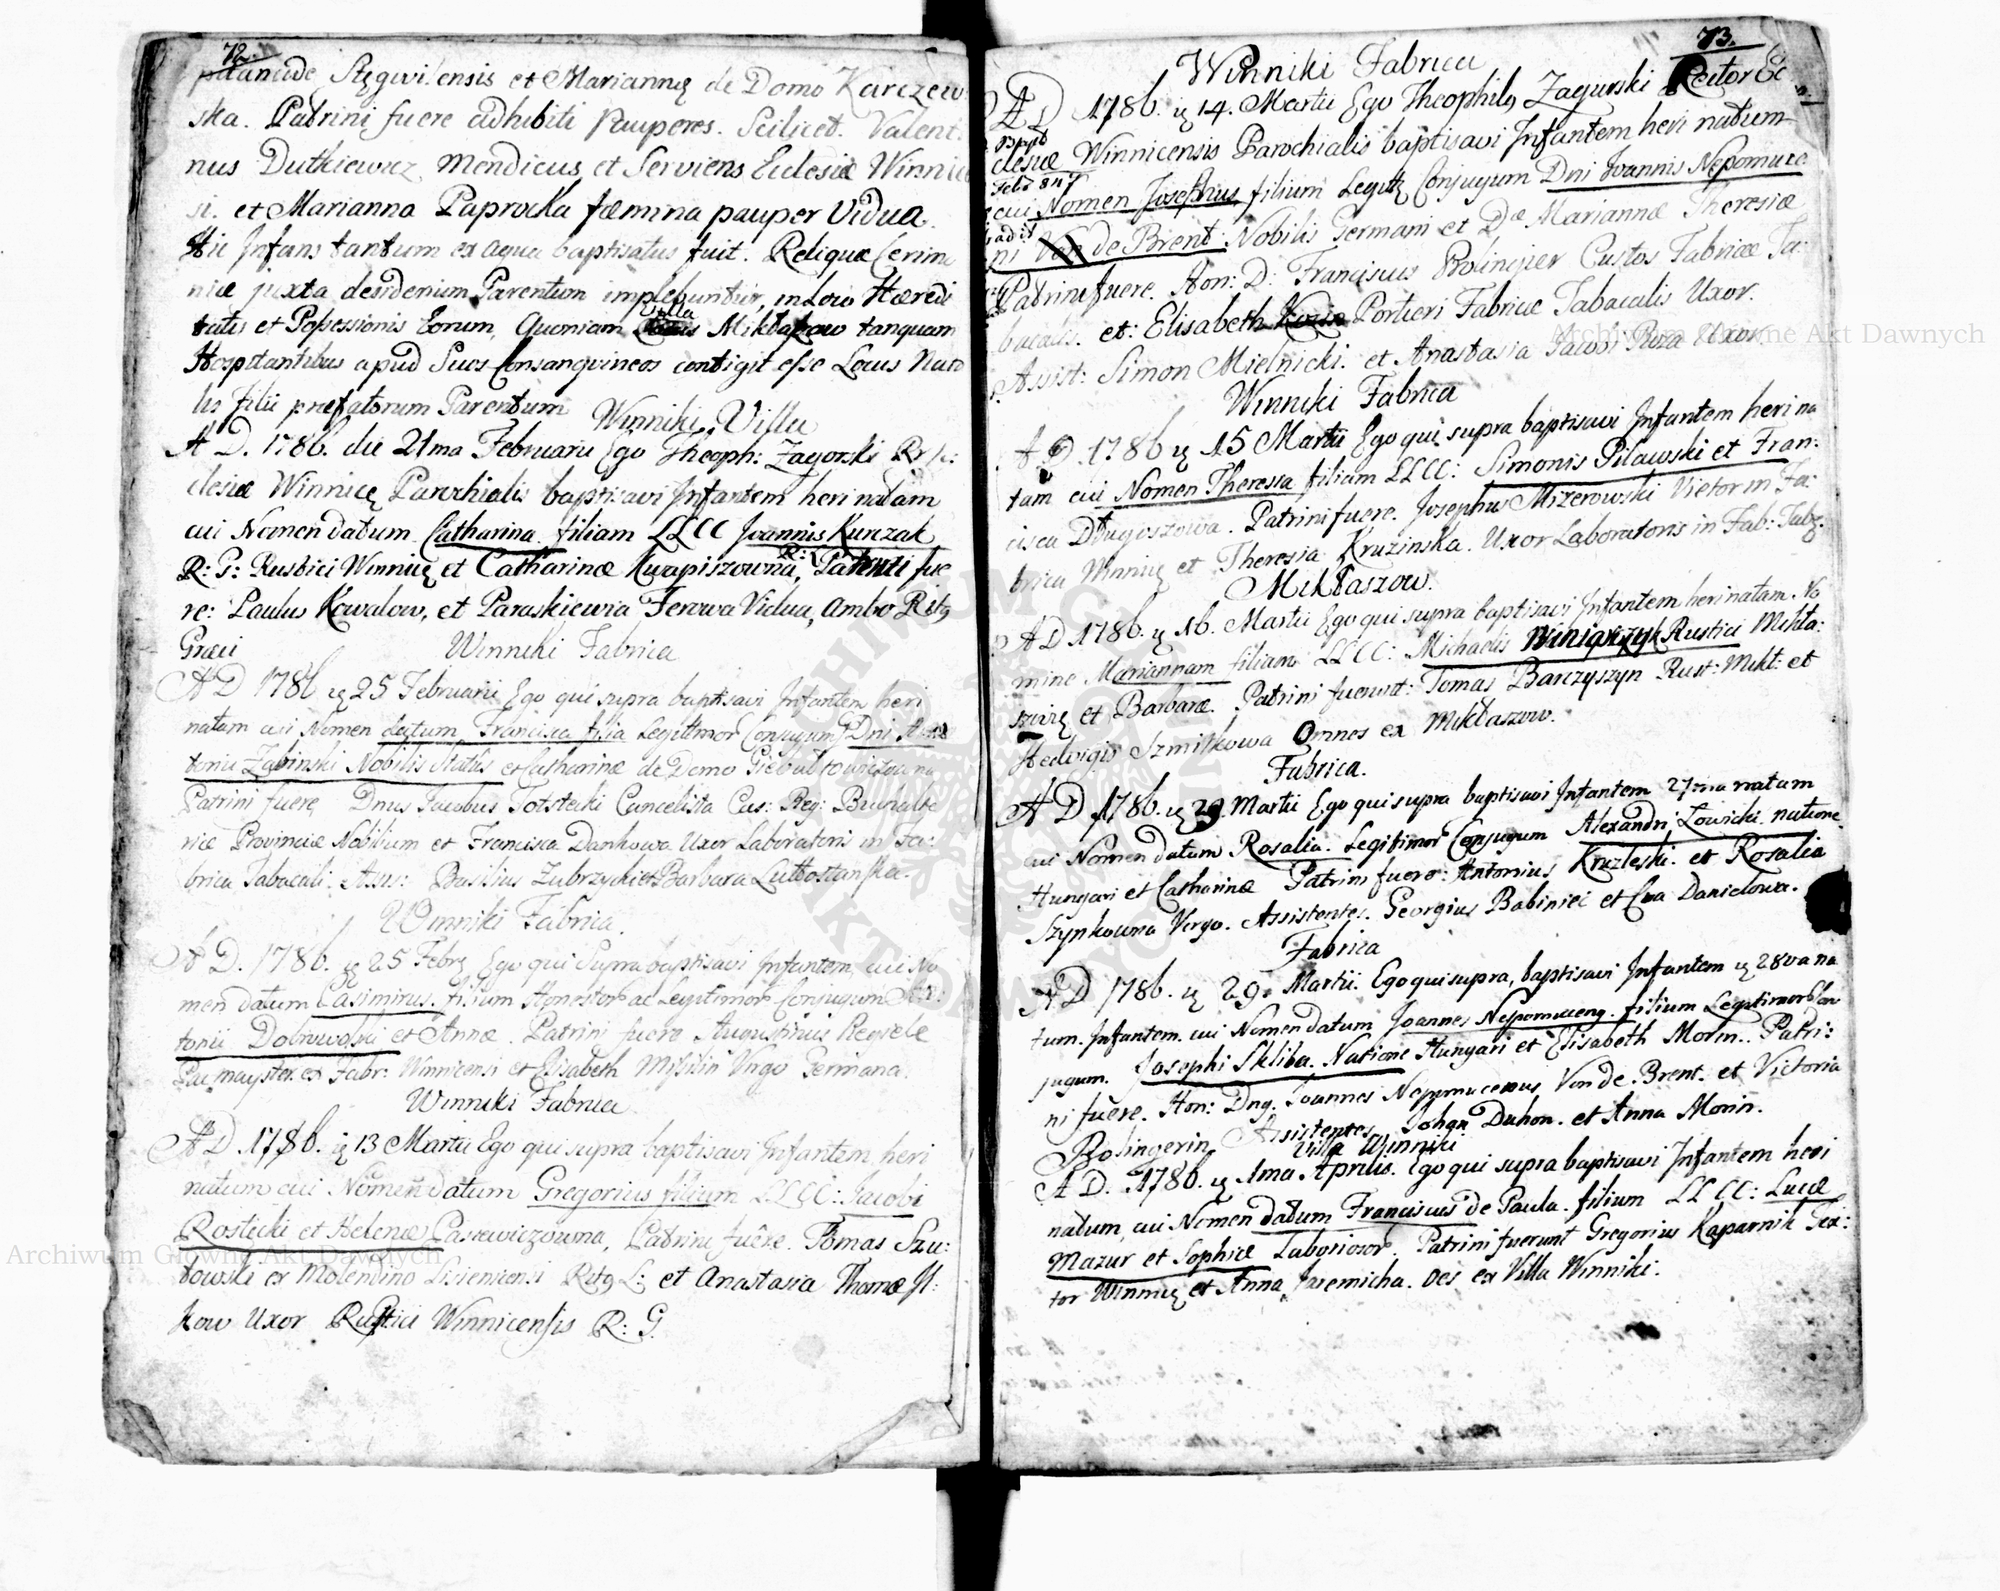 72.
Stęgwilensis et Mariannę de Domo Karczew
ska. Patrini fuere adhibiti Pauperes. Scilicet. Valenti
nus Dutkiewicz Mendicus et Serviens Ecclesiæ Winnice
si. et Marianna Paprocka fæmina pauper Vidua.
Hic Infans tantum ex aqua baptisatus fuit. Reliquæ Cerimo
niæ juxta desiderium Parentum implebuntur, in Loco Hæredi
tatis et Possessionis Eorum, Quoniam Villa Mikłaszow tanquam
Hospitantibus apud Suos Consangvineos contigit esse Locus Nata
lis filii præfatorum Parentum
Winniki Villa
A D. 1786. die 21ma Februarii Ego Theoph: Zagorski R
clesiæ Winnicę Parochialis baptisavi Infantem heri natam
cui Nomen datum Catharina filiam LLCC Joannis Kurczak
R: G: Rustici Winnicę et Catharinæ Kwapiszowna, R: L: Patrini fue
re: Paulus Kowalow, et Paraskiewia Ferowa Vidua, ambo Ritg
Græci
Winniki Fabrica
A D 1786 ię 25 Februarii Ego qui supra baptisavi Infantem heri
natam cui Nomen datum Francisca filia Legittmor Conjugum Dni An
tonii Zabinski Nobilis Status et Catharinæ de Domo
Patrini fuere, Dnus Jacobus Totstecki Cancelista Cas: Reg: Buchalte
riæ Provinciæ Nobilium et Francisca Dankowa Uxor Laboratoris in Fa:
brica Tabacali. Assis: Basilius Zubrzycki et Barbara Luttostanska.
Winniki Fabrica.
A D. 1786. ię 25 Febrę Ego qui Supra baptisavi Infantem, cui No
men datum Casimirus. filium Honestor ac Legitimor Conjugum An:
tonii Dobrowolski et Annæ. Patrini fuere Augustinus Regiele
Paumayster ex Fabr: Winnicensi et Elisabeth Misilin Virgo Germana.
Winniki Fabrica
A D. 1786. ię 13 Martii Ego qui supra baptisavi Infantem, heri
natum cui Nomen datum Gregorius filium LLCC: Jacobi
Rostecki et Helenæ Casiewiczowna, Patrini fuêre. Tomas Szu:
towski ex Molendino Lisienicensi Ritg L: et Anastasia Thomæ Il:
kow Uxor Rustici Winnicensis R: G.
73.
Winniki Fabrica
A D 1786. ię 14. Martii Ego Theophilg Zagurski Rector Ec
clesiæ Winnicensis Parochialis baptisavi Infantem heri natum
cui Nomen Josephus filium Legitę Conjugum Dni Joannis Nepomuce
ni Von de Brent Nobilis Germani et Dæ Mariannæ Theresiæ
Patrini fuere. Hon: D: Franciscus Polinejier Custos Fabricæ Ta:
bacalis. et: Elisabeth Portieri Fabricæ Tabacalis Uxor.
Assist: Simon Mielnicki: et Anastasia Jacobi Roza Uxor
Winniki Fabrica
A D. 1786 ię 15 Martii Ego qui supra baptisavi Infantem heri na
tam cui Nomen Theressa filiam LLCC: Simonis Pilawski et Fran:
cisca Długoszowa. Patrini fuere. Josephus Mizerowski Vietor in Fa:
brica Winnicę et Theresia Kruzinska. Uxor Laboratoris in Fab: Tabę
Mikłaszow.
A D 1786. ię 16. Martii Ego qui supra baptisavi Infantem heri natam. No
mine Mariannam filiam LLCC: Michaelis Winiarczyk Rustici Mikła:
szwię et Barbaræ. Patrini fuerunt: Tomas Barczyszyn Rust: Mikł: et
Hedvigis Szmitkowa Omnes ex Mikłaszow.
Fabrica.
A D 1786. ię 29. Martii Ego qui supra baptisavi Infantem 27ma natam
cui Nomen datum Rosalia. Legitimor Conjugum Alexandri Łowicki natione
Hungari et Catharinæ Patrini fuere: Antonius Kruzleski. et Rosalia
Szynkowna Virgo. Assistentes. Georgius Babiniec et Eva Danielowa.
Fabrica
A D 1786. ię 29. Martii. Ego qui supra, baptisavi Infantem ię 28va na
tum. Infantem. cui Nomen datum Joannes Nepomuceng. filium Legitimor Con
jugum. Josephi Skliba. Natione Hungari et Elisabeth Morin. Patri:
ni fuêre. Hon: Dng. Joannes Nepomucenus Von de. Brent. et Victoria
Bolingerin Assistentes Johan Duhon. et Anna Morin.
Villa Winniki
A D. 1786. ię 1ma Aprilis. Ego qui supra baptisavi Infantem heri
natum, cui Nomen datum Franciscus de Paula. filium LLCC: Lucæ
Mazur et Sophiæ Laboriosor. Patrini fuerunt Gregorius Kaparnik Tex:
tor Winnicę et Anna Jaremicha. oes ex Villa Winniki.
Archiwum Główne Akt Dawnych
Archiwum Główne Akt Dawnych